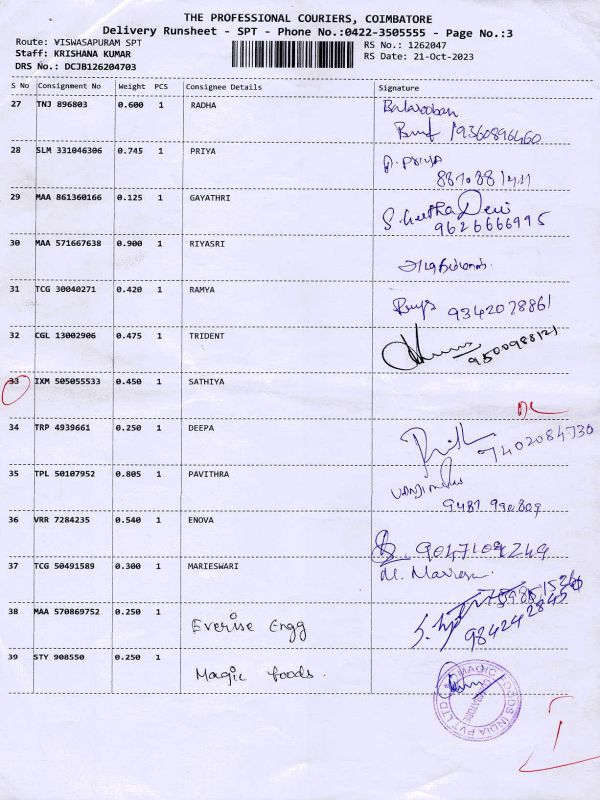 THE PROFESSIONAL COURIERS, COIMBATORE
Delivery Runsheet - SPT - Phone No.:0422-3505555 - Page No.:3
Route: VISWASAPURAM SPT
Staff: KRISHANA KUMAR
DRS No.: DCJB126204703
RS No.: 1262047
RS Date: 21-Oct-2023
S No Consignment No Weight PCS Consignee Details Signature
27 TNJ 896803 0.600 1 RADHA
9360896460
28 SLM 331046306 0.745 1 PRIYA
P. PRIYA
29 MAA 861360166 0.125 1 GAYATHRI
S. Geetha Devi
9626666995
30 MAA 571667638 0.900 1 RIYASRI
31 TCG 30040271 0.420 1 RAMYA
9342078861
32 CGL 13002906 0.475 1 TRIDENT
33 IXM 505055533 0.450 1 SATHIYA
DL
34 TRP 4939661 0.250 1 DEEPA
7402084730
35 TPL 50107952 0.805 1 PAVITHRA
9487 990809
36 VRR 7284235 0.540 1 ENOVA
9047109249
37 TCG 50491589 0.300 1 MARIESWARI
38 MAA 570869752 0.250 1 Everise Engg
39 STY 908550 0.250 1 Magic foods.
MAGIC FOODS INDIA PVT LTD
COIMBATORE